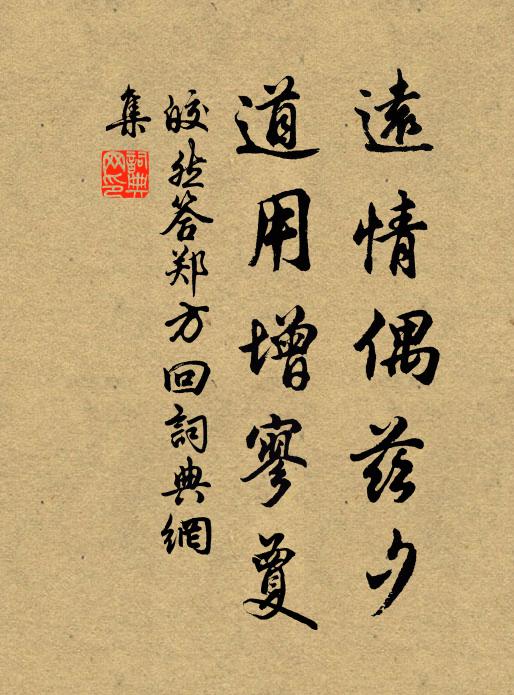 遠情偶茲夕
道用增寥敻
皎然答郑方回詞典網
集
詞典網印